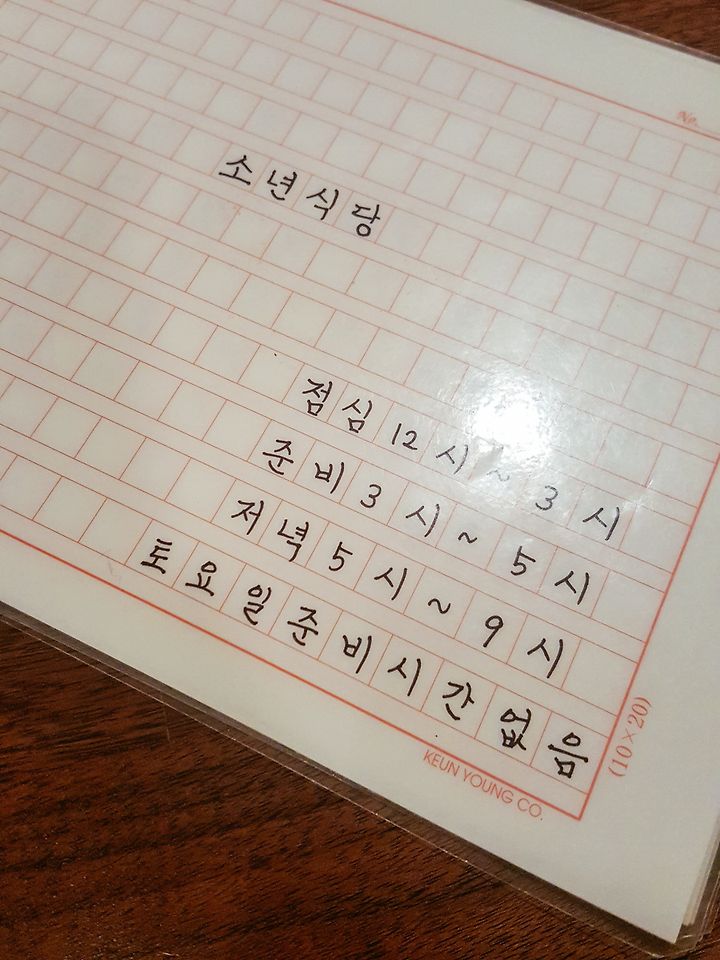 No.
소년식당
점심 12시~3시
준비 3시~5시
저녁 5시~9시
토요일준비시간없음
(10×20)
KEUN YOUNG CO.